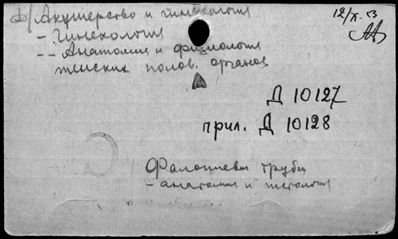 Акушерство и гинекология
12/X.53
- Гинекология
-- Анатомия и физиология
женских полов. органов
Д 10127
прил. Д 10128
Фаллопиевы трубы
- анатомия и